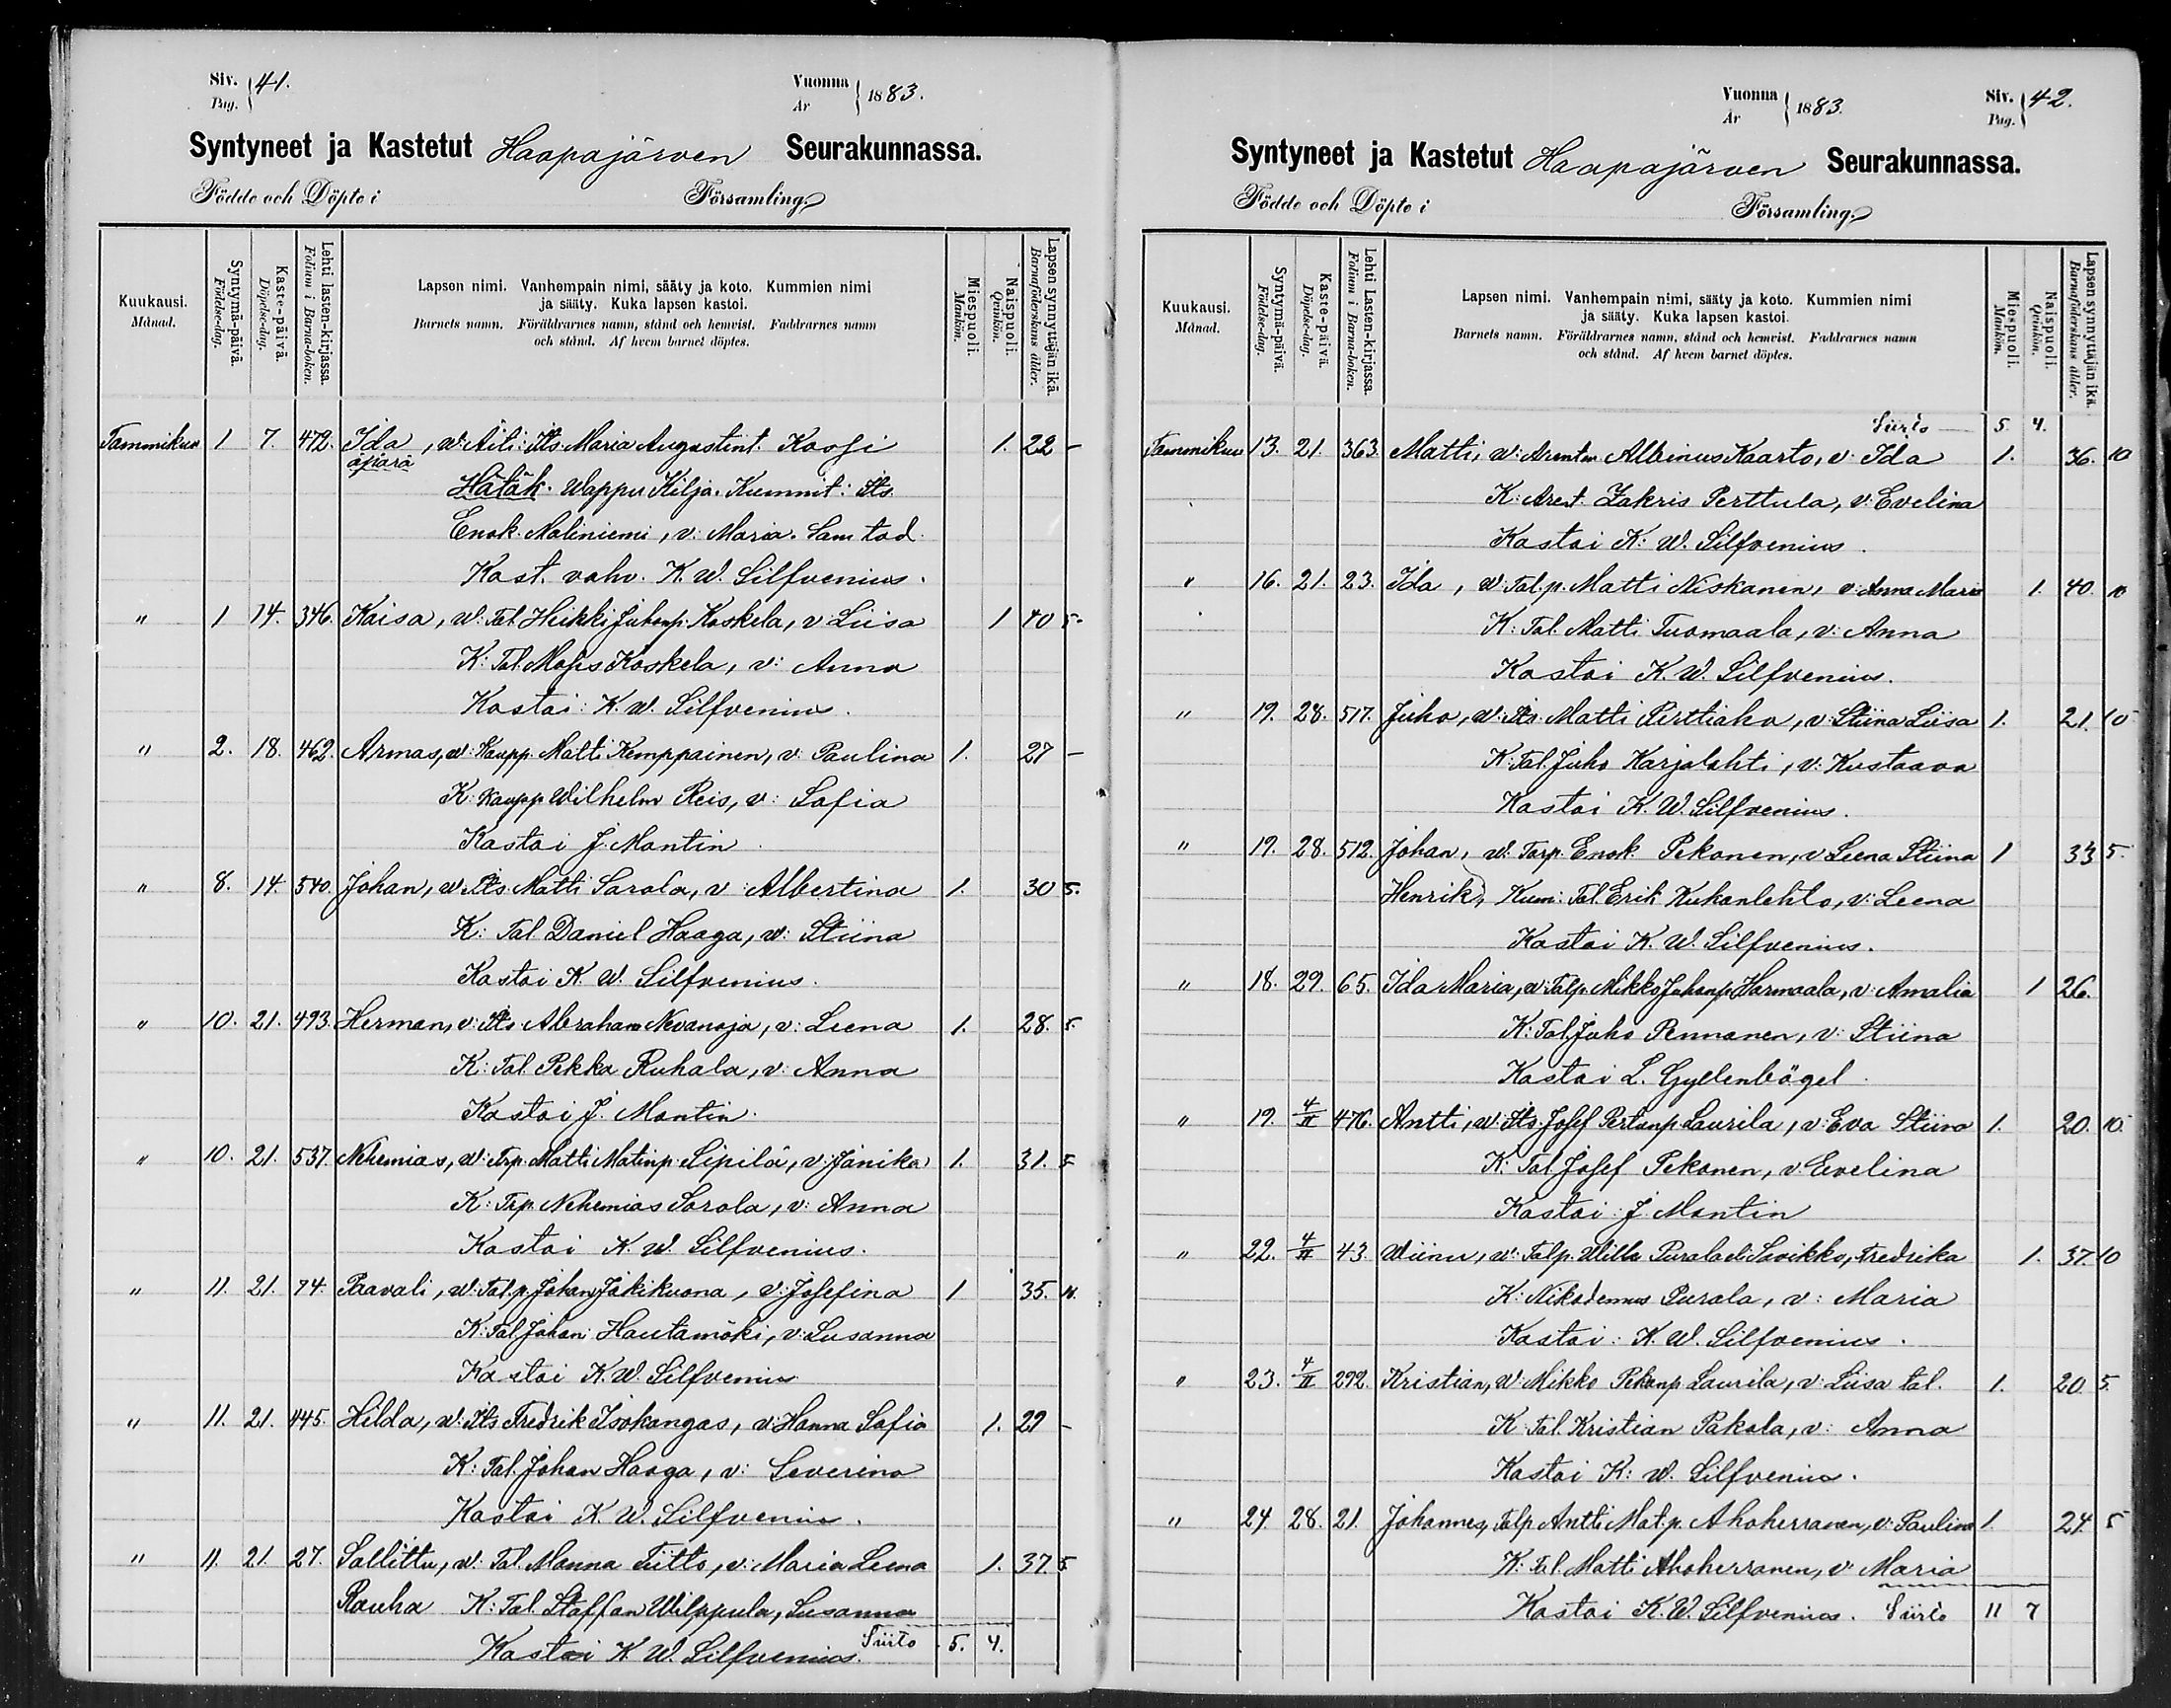 Siv. Pag. } 41.
Vuonna År } 1883.
Syntyneet ja Kastetut Haapajärven Seurakunnassa.
Födde och Döpte i Församling.
Kuukausi. Månad.
Syntymä-päivä. Födelse-dag.
Kaste-päivä. Döpelse-dag.
Lehti lasten-kirjassa. Folium i Barna-boken.
Lapsen nimi. Vanhempain nimi, sääty ja koto. Kummien nimi
ja sääty. Kuka lapsen kastoi.
Barnets namn. Föräldrarnes namn, stånd och hemvist. Faddrarnes namn
och stånd. Af hvem barnet döptes.
Miespuoli. Mankön.
Naispuoli. Qvinkön.
Lapsen synnyttäjän ikä. Barnaföderskans ålder.
Tammikuu 1 7. 472. Ida, w: Äiti: Its Maria Augustint. 1. 22 -
äpärä
Hätäk. Wappu Kilja. Kummit: Its
Enok Maliniemi, v: Maria. Sam tod.
Kast. vahv. K. W. Silfvenius.
" 1 14. 346. Kaisa, w: Tal. Heikki Juhanp. Koskela, v: Liisa 1 40 5.
K: Tal. Koskela, v: Anna
Kastoi: K. W. Silfvenius.
" 2. 18. 462. Armas, w: Kaupp. Matti Kemppainen, v: Paulina 1. 27 -
K: Kaupp Wilhelm Reis, v: Sofia
Kastoi J. Montin
" 8. 14. 540. Johan, w: Its Matti Sarola, v: Albertina 1. 30 5.
K: Tal. Daniel Haaga, w: Stiina
Kastoi K. W. Silfvenius.
" 10. 21. 493. Herman, v: Its Abraham Nevanoja, v: Leena 1. 28. 5.
K: Tal. Pekka Ruhala, v: Anna
Kastoi J. Montin.
" 10. 21. 537. Nehemias, w: Trp. Matti Matinp. Sipilä, v: Janika 1. 31. 5
K: Trp. Nehemias Sarola, v: Anna
Kastoi K. W. Silfvenius.
" 11. 21. 74. Paavali, w: Tal.p. Johan Jäkikuona, v: Josefina 1 35.
K: Tal. Johan Hautamäki, v: Susanna
Kastoi K. W. Silfvenius
" 11. 21. 445. Hilda, w: Its Fredrik Isokangas, v: Hanna Sofia 1. 29 -
K: Tal. Johan Haaga, v: Severina
Kastoi K. W. Silfvenius.
" 11. 21. 27. Sallittu, w: Tal. Manna Tiitto, v: Maria Leena 1. 37 5
Rauha K: Tal. Staffan Wilppula, Susanna
Kastoi K. W. Silfvenius. Siirto 5. 4.
Vuonna År } 1883.
Siv. Pag. } 42.
Syntyneet ja Kastetut Haapajärven Seurakunnassa.
Födde och Döpte i Församling.
Kuukausi. Månad.
Syntymä-päivä. Födelse-dag.
Kaste-päivä. Döpelse-dag.
Lehti Lasten-kirjassa. Folium i Barna-boken.
Lapsen nimi. Vanhempain nimi, sääty ja koto. Kummien nimi
ja sääty. Kuka lapsen kastoi.
Barnets namn. Föräldrarnes namn, stånd och hemvist. Faddrarnes namn
och stånd. Af hvem barnet döptes.
Miespuoli. Mankön.
Naispuoli. Qvinkön.
Lapsen synnyttäjän ikä. Barnaföderskans ålder.
Siirto 5 4.
Tammikuu 13. 21. 363. Matti, w: Albinus Kaarto, v: Ida 1. 36. 10
K: Zakris Perttula, v: Evelina
Kastoi K: W. Silfvenius.
" 16. 21. 23. Ida, w: Tal.p. Matti Niskanen, v: Anna Maria 1. 40. 10
K: Tal. Matti Tuomaala, v: Anna
Kastoi K. W. Silfvenius.
" 19. 28. 517. Juho, w: Its. Matti Perttiaho, v: Stiina Liisa 1. 21. 10
K: Tal. Juho Karjalahti, v: Kustaava
Kastoi K. W. Silfvenius.
" 19. 28. 512. Johan, w: Torp. Enok Pekonen, v: Leena Stiina 1 33 5.
Henrik, Kum: Tal. Erik Kukonlehto, v: Leena
Kastoi K. W. Silfvenius.
" 18. 29. 65. Ida Maria, w: Talp. Mikko Juhanp. Harmaala, v: Amalia 1 26.
K: Tal. Juho Pennanen, v: Stiina
Kastoi L. Gyllenbögel.
" 19. 4/II 476. Antti, w: Its. Josef Pertunp. Laurila, v: Eva Stiina 1. 20. 10.
K: Tal. Josef Pekonen, v: Evelina
Kastoi: J. Montin
" 22. 4/II 43. Wiinu, w: Talp. Wille Purala el. Savikko, Fredrika 1. 37. 10
K: Nikodemus Purola, v: Maria
Kastoi: K. W. Silfvenius.
" 23. 4/II 292. Kristian, w: Mikko Pekanp. Laurila, v: Liisa tal. 1. 20 5.
K: Tal. Kristian Pakola, v: Anna
Kastoi K: W. Silfvenius.
" 24. 28. 21. Johannes, Talp. Antti Mat.p. Ahoherranen, v: Paulina 1. 24. 5
K: Tal. Matti Ahoherranen, v: Maria
Kastoi K. W. Silfvenius. Siirto 11 7